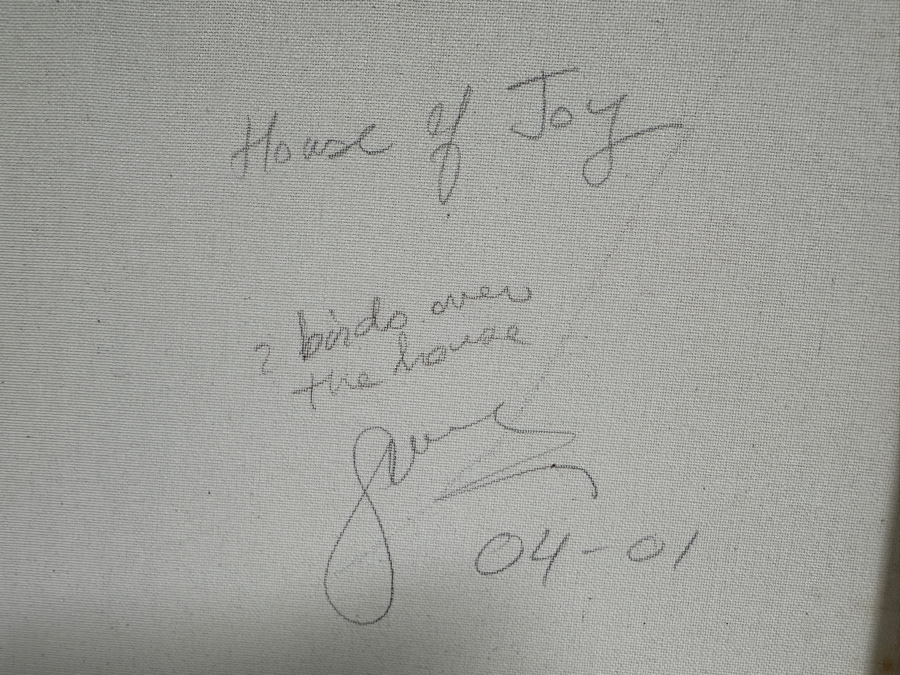 House of Joy
2 birds over
the house
04-01